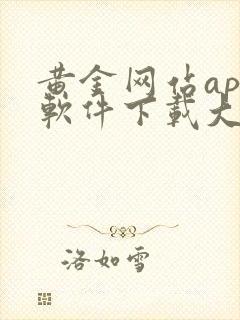 黄金网站ap
软件下载大
洛如雪